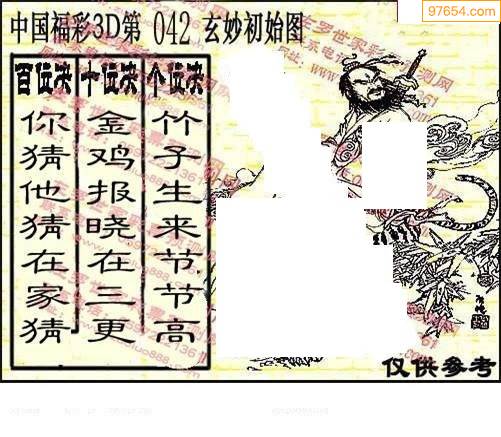 97654.com
中国福彩3D第 042 玄妙初始图
百位决 十位决 个位决
你猜他猜在家猜
金鸡报晓在三更
竹子生来节节高
仅供参考